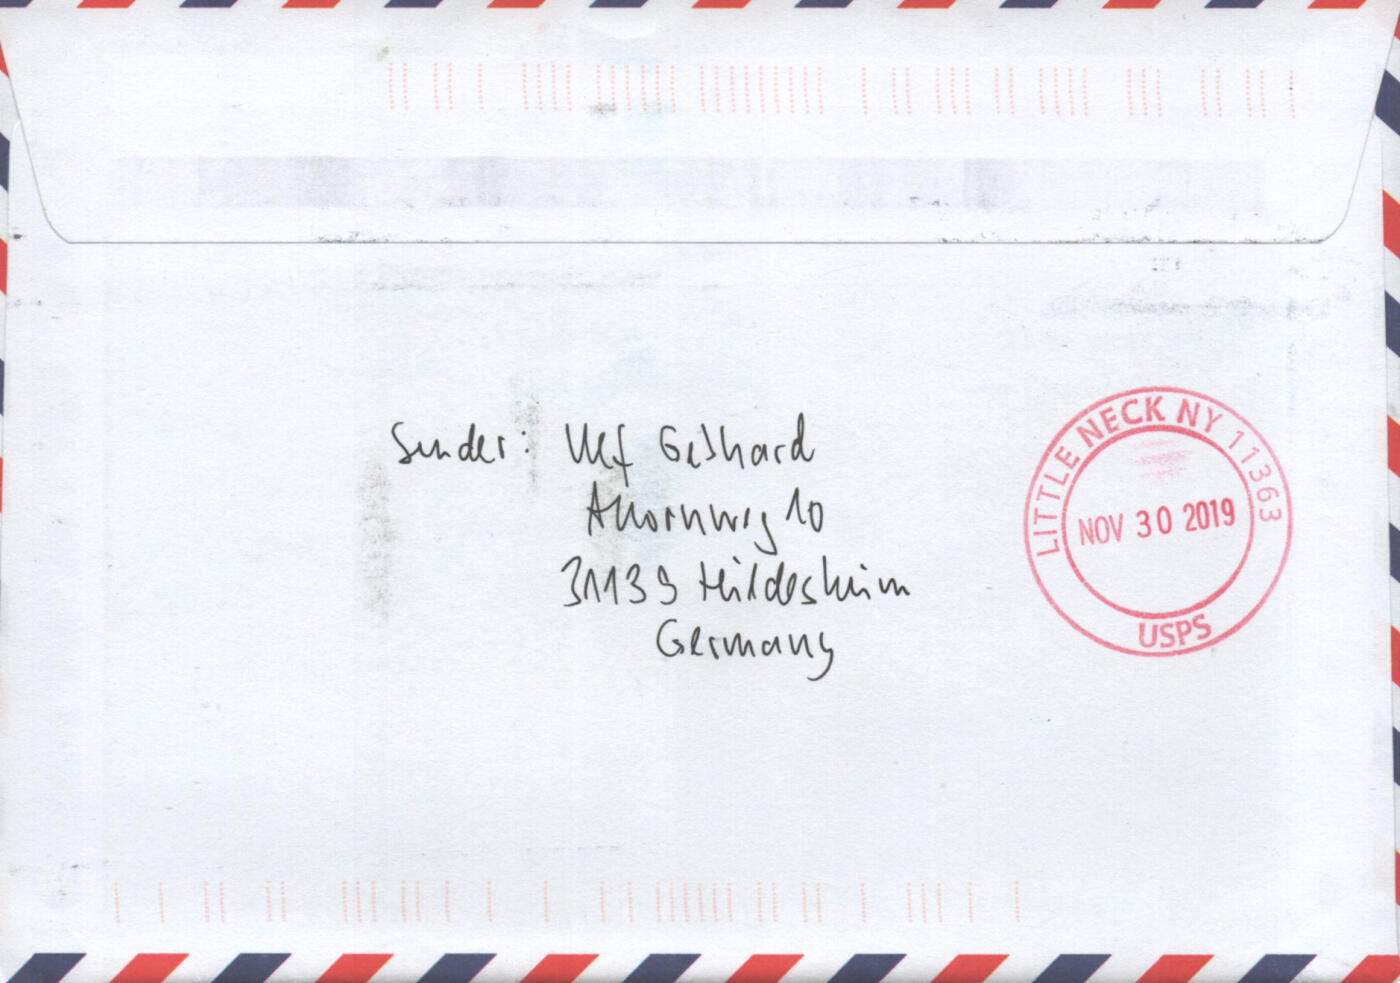 Sender: Ulf Gebhard
Ahornweg 10
31139 Hildesheim
Germany
LITTLE NECK NY 11363
NOV 30 2019
USPS